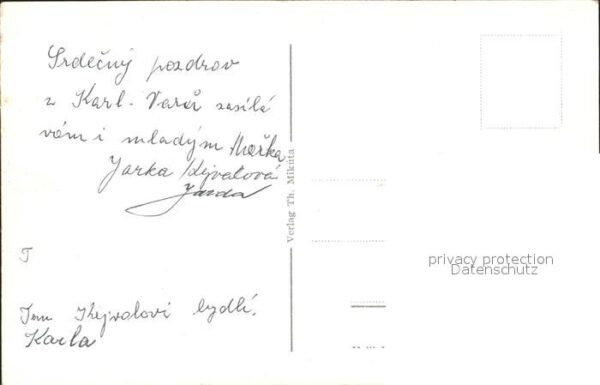 Srdečný pozdrov
z Karl. Varů zasílá
vám i mladým Mařka,
Jarka Kejvalová
Jarda
Verlag Th. Mikuta
privacy protection
Datenschutz
T
Jsou Kejvalovi bydlí.
Karla